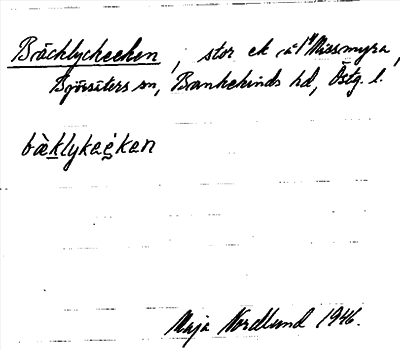 Bräcklycheeken, stor ek å Missmyra,
Björsäters sn, Bankekinds hd, Östg. l.
bàklykaėkan
Maja Nordlund 1946.